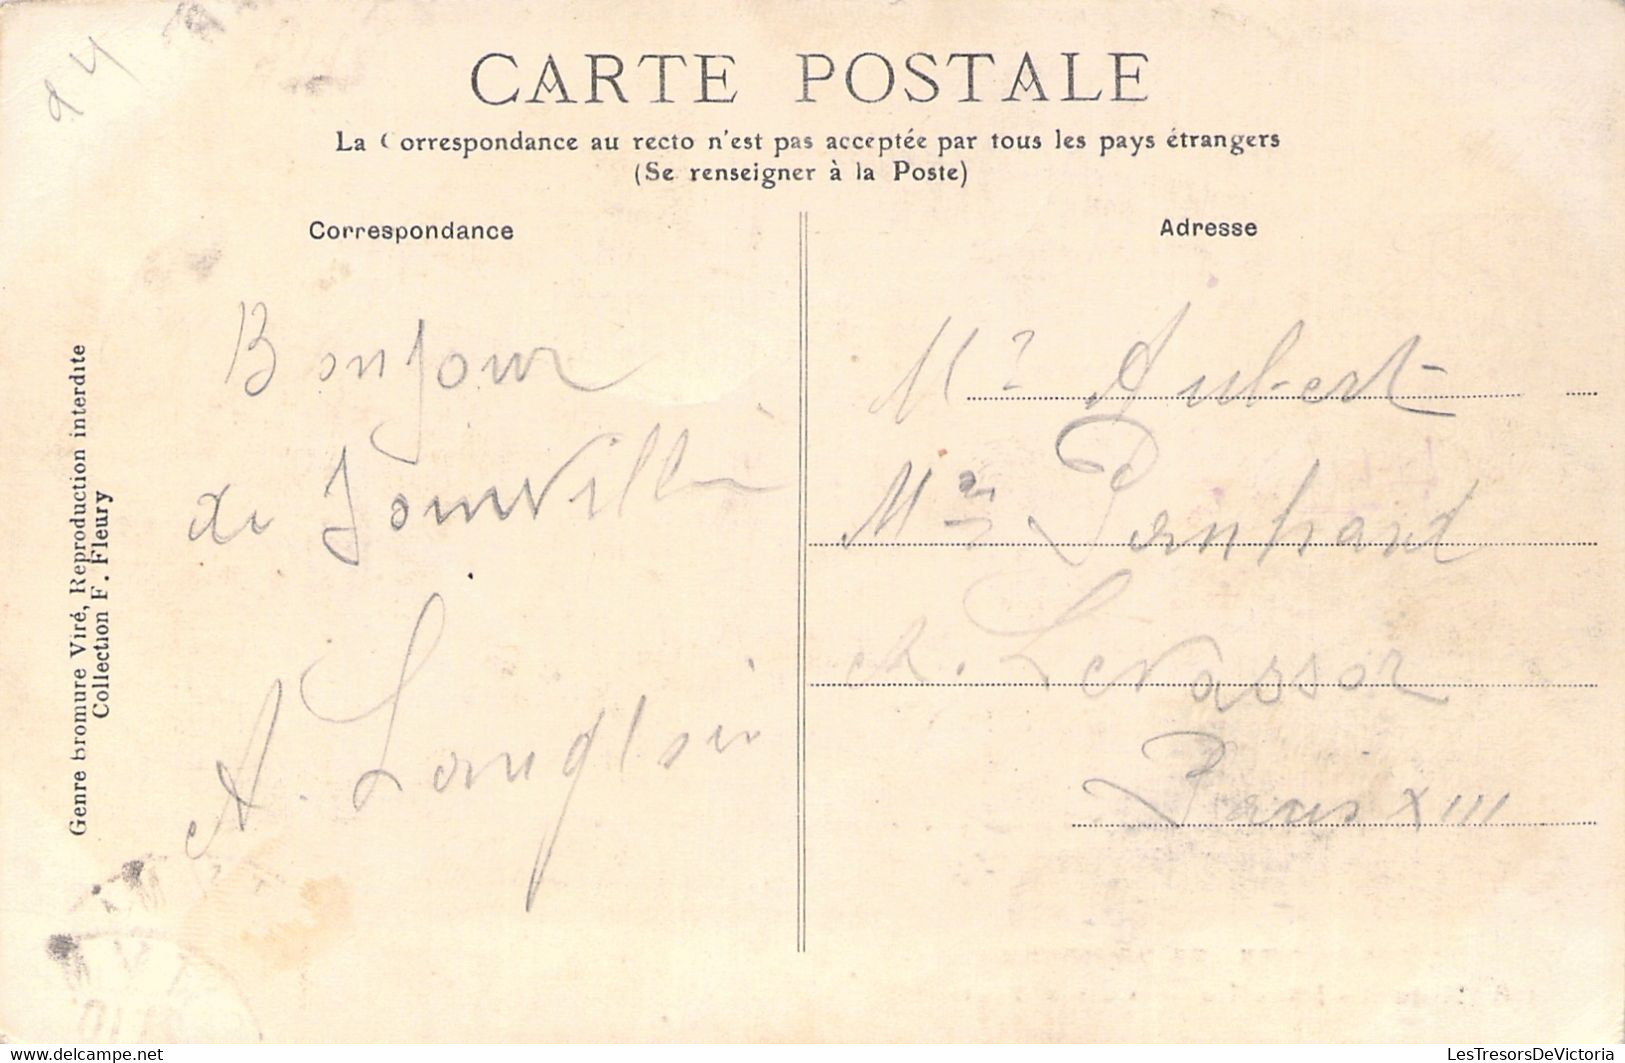 94
CARTE POSTALE
La Correspondance au recto n'est pas acceptée par tous les pays étrangers
(Se renseigner à la Poste)
Correspondance
Adresse
Genre bromure Viré, Reproduction interdite
Collection F. Fleury
Bonjour
de Joinville
A. Langlois
Mr Aubert
Mon Panhard
& Levassor
Paris XIII
delcampe.net
LesTresorsDeVictoria